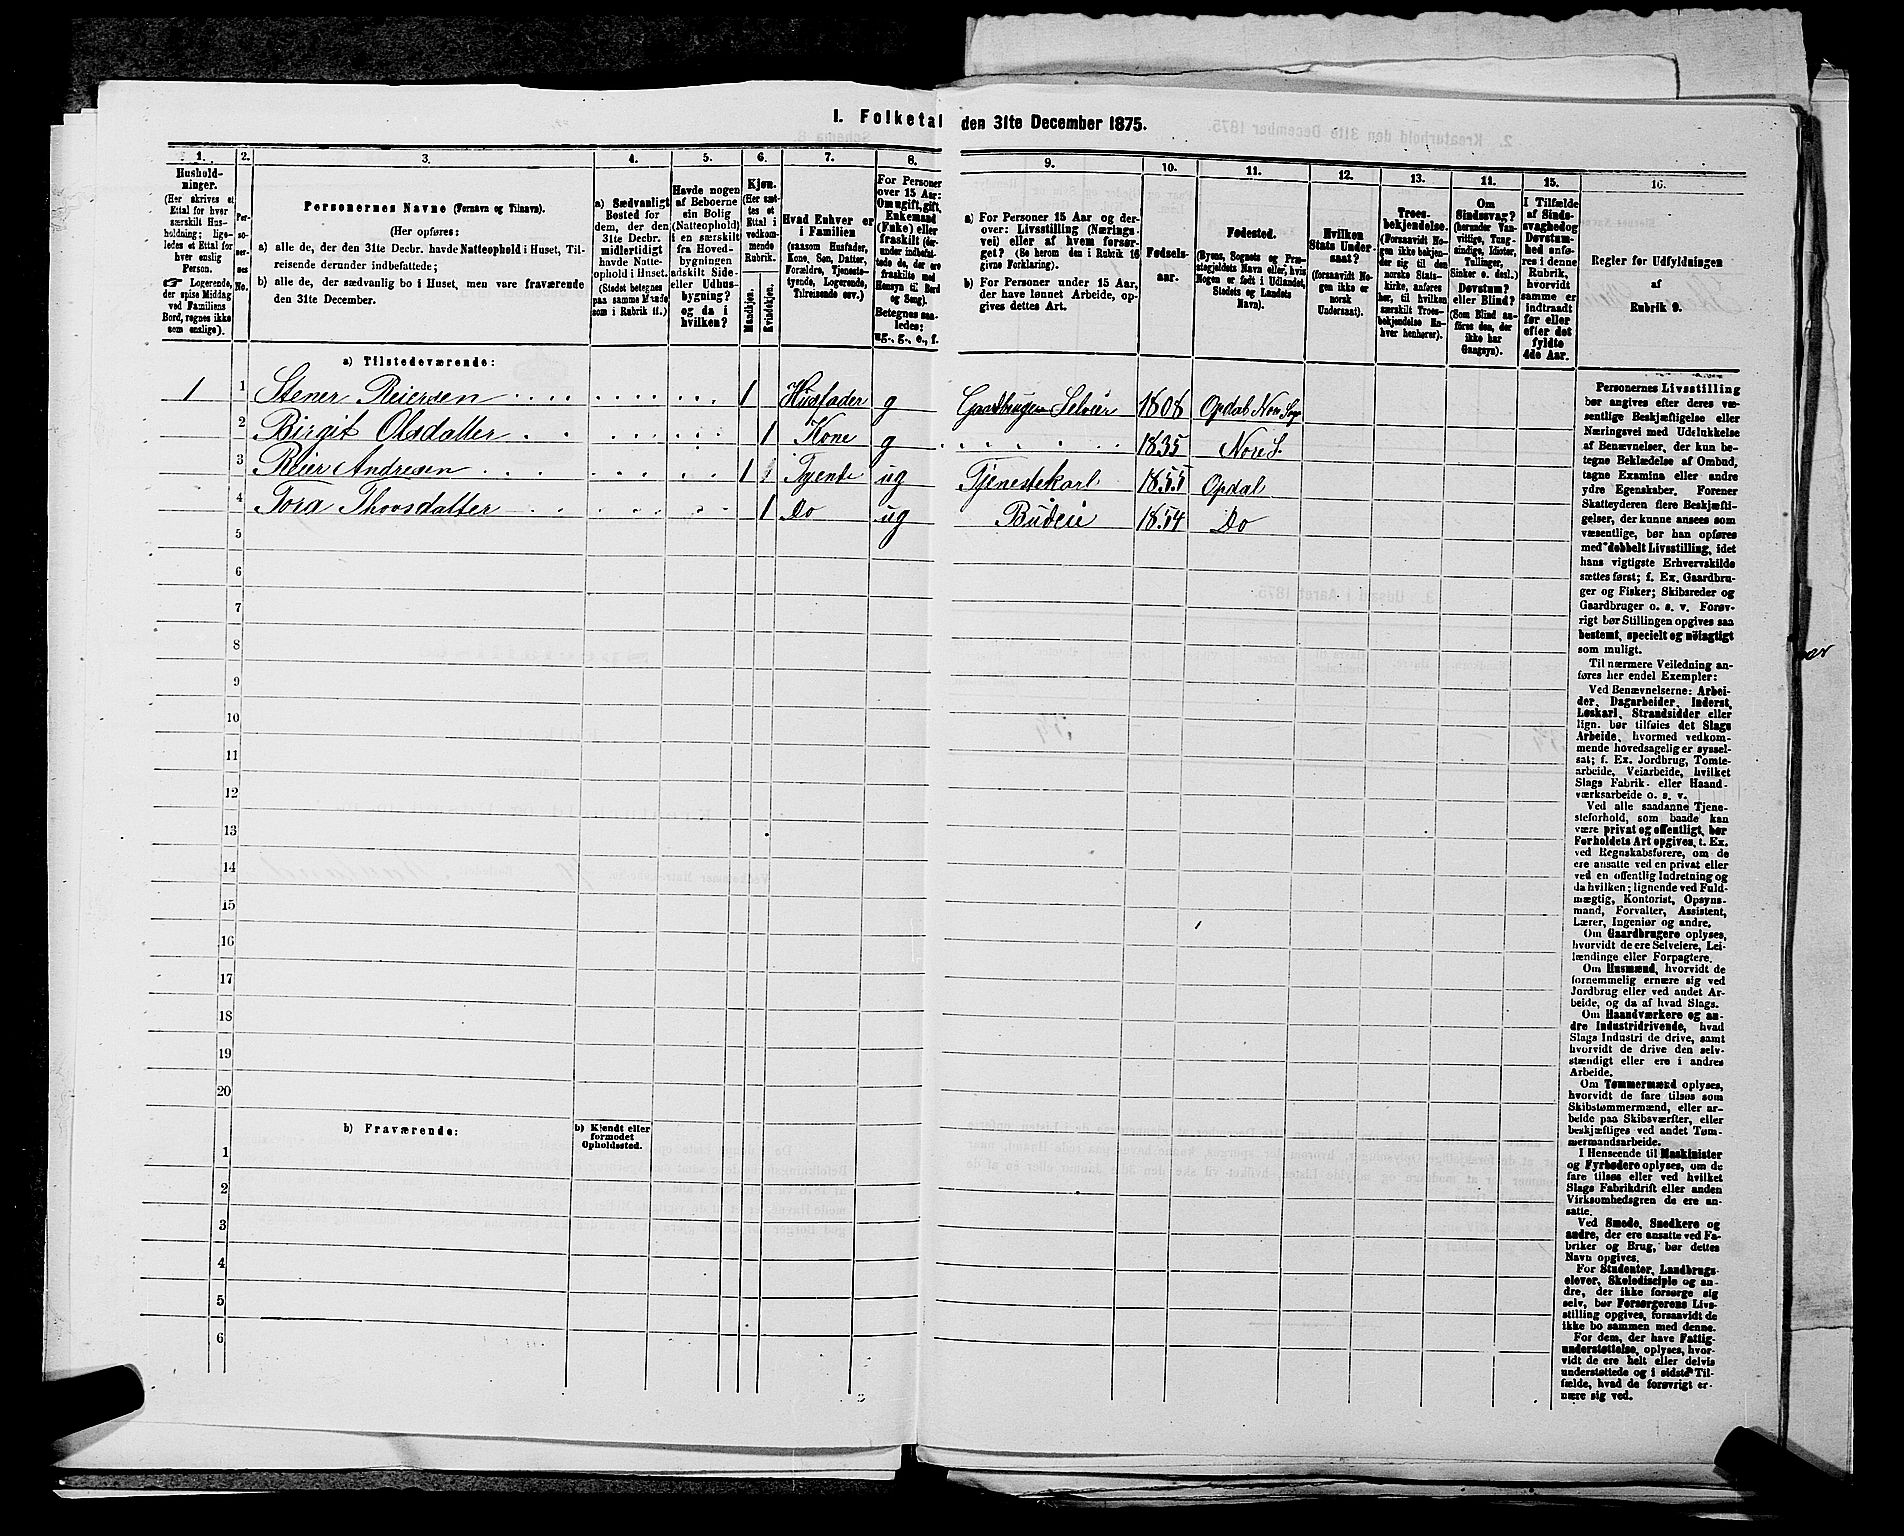 I. Folketal den 31te December 1875.
1. 2. 3. 4. 5. 6. 7. 8. 9. 10. 11. 12. 13. 14. 15. 16.
Hushold-
ninger.
(Her skrives et
Ettal for hver
særskilt Hus-
holdning; lige-
ledes et Ettal for
hver enslig
Person.
☛ Logerende,
der spise Middag
ved Familiens
Bord, regnes ikke
som enslige).
Per-
so-
ner-
nes
No.
Personernes Navne (Fornavn og Tilnavn).
(Her opføres:
a) alle de, der den 31te Decbr. havde Natteophold i Huset, Til-
reisende derunder indbefattede;
b) alle de, der sædvanlig bo i Huset, men vare fraværende
den 31te December.
a) Sædvanligt
Bosted for
dem, der den
31te Decbr.
midlertidigt
havde Natte-
ophold i Huset.
(Stedet betegnes
paa samme Maade
som i Rubrik 11.)
Havde nogen
af Beboerne
sin Bolig
(Natteophold)
i en særskilt
fra Hoved-
bygningen
adskilt Side-
eller Udhus-
bygning?
og da i
hvilken?
Kjøn.
(Her sæt-
tes et
Ettal i
vedkom-
mende
Rubrik.
Mandkjøn.
Kvindekjøn.
Hvad Enhver er
i Familien
(saasom Husfader,
Kone, Søn, Datter,
Forældre, Tjeneste-
tyende, Logerende,
Tilreisende osv.)
For Personer
over 15 Aar:
Om ugift, gift,
Enkemand
(Enke) eller
fraskilt (der-
under indbefat-
tede de, der ere
fraskilte med
Hensyn til Bord
og Seng).
Betegnes saa-
ledes:
ug., g., e., f.
a) For Personer 15 Aar og der-
over: Livsstilling (Nærings-
vei) eller af hvem forsør-
get? (Se herom den i Rubrik 16
givne Forklaring).
b) For Personer under 15 Aar,
der have lønnet Arbeide, op-
gives dettes Art.
Fødsels-
aar.
Fødested.
(Byens, Sognets og Præ-
stegjeldets Navn eller, hvis
Nogen er født i Udlandet,
Stedets og Landets
Navn).
Hvilken
Stats Under-
saat?
(forsaavidt No-
gen ikke er
norsk
Undersaat).
Troes-
bekjendelse.
(Forsaavidt No-
gen ikke bekjen-
der sig til den
norske Stats-
kirke, anføres
her, til hvilken
særskilt Troes-
bekjendelse En-
hver henhører).
Om
Sindssvag?
(herunder Van-
vittige, Tung-
sindige, Idioter,
Tullinger,
Sinker o. desl.)
Døvstum?
eller Blind?
(Som Blind an-
føres den, der
ikke har
Gangsyn).
I Tilfælde
af Sinds-
svaghed og
Døvstum-
hed anfø-
res i denne
Rubrik,
hvorvidt
samme er
indtraadt
før eller
efter det
fyldte
4de Aar.
Regler for Udfyldningen
af
Rubrik 9.
a) Tilstedeværende:
1 1 Stener Reiersen 1 Husfader g Gaardbruger Selveier 1808 Opdal Nore Sog
2 Birgit Olsdatter 1 Kone g 1835 Nore S.
3 Reier Andresen 1 Tjente ug Tjenestekarl 1855 Opdal
4 Tora Thorsdatter 1 Do ug Budeie 1854 Do
5
6
7
8
9
10
11
12
13
14
15
16
17
18
19
20
b) Fraværende:
b) Kjendt eller
formodet
Opholdssted.
1
2
3
4
5
6
Personernes Livsstilling
bør angives efter deres væ-
sentlige Beskjæftigelse eller
Næringsvei med Udelukkelse
af Benævnelser, der kun be-
tegne Beklædelse af Ombud,
tagne Examina eller andre
ydre Egenskaber. Forener
Skatteyderen flere Beskjæfti-
gelser, der kunne ansees som
væsentlige, bør han opføres
med dobbelt Livsstilling, idet
hans vigtigste Erhvervskilde
sættes først; f. Ex. Gaardbru-
ger og Fisker; Skibsreder og
Gaardbruger o. s. v. Forøv-
rigt bør Stillingen opgives saa
bestemt, specielt og nøiagtigt
som muligt.
Til nærmere Veiledning an-
føres her endel Exempler:
Ved Benævnelserne: Arbei-
der, Dagarbeider, Inderst,
Løskarl, Strandsidder eller
lign. bør tilføies det Slags
Arbeide, hvormed vedkom-
mende hovedsagelig er syssel-
sat; f. Ex. Jordbrug, Tomte-
arbeide, Veiarbeide, hvilket
Slags Fabrik- eller Haand-
værksarbeide o. s. v.
Ved alle saadanne Tjene-
steforhold, som baade kan
være privat og offentligt, bør
Forholdets Art opgives, t. Ex.
ved Regnskabsførere, om de
ere ansatte ved en privat eller
ved en offentlig Indretning og
da hvilken; lignende ved Fuld-
mægtig, Kontorist, Opsyns-
mand, Forvalter, Assistent,
Lærer, Ingeniør og andre.
Om Gaardbrugere oplyses,
hvorvidt de ere Selveiere, Lei-
lændinge eller Forpagtere.
Om Husmænd, hvorvidt de
fornemmelig ernære sig ved
Jordbrug eller ved andet Ar-
beide, og da af hvad Slags.
Om Haandværkere og an-
dre Industridrivende, hvad
Slags Industri de drive, samt
hvorvidt de drive den selv-
stændigt eller ere i andres
Arbeide.
Om Tømmermænd oplyses,
hvorvidt de fare tilsøs som
Skibstømmermænd, eller ar-
beide paa Skibsværfter, eller
beskjæftiges ved andet Tøm-
mermandsarbeide.
I Henseende til Maskinister
og Fyrbødere oplyses, om de
fare tilsøs eller ved hvilket
Slags Fabrikdrift eller anden
Virksomhedsgren de ere an-
satte.
Ved Smede, Snedkere og
andre, der ere ansatte ved Fa-
briker og Brug, bør dettes
Navn opgives.
For Studenter, Landbrugs-
elever, Skoledisciple og an-
dre, der ikke forsørge sig
selv, bør Forsørgerens Livs-
stilling opgives, forsaavidt de
ikke bo sammen med denne.
For dem, der have Fattig-
understøttelse, oplyses, hvor-
vidt de ere helt eller delvis
understøttede og i sidste Til-
fælde, hvad de forøvrigt er-
nære sig ved.